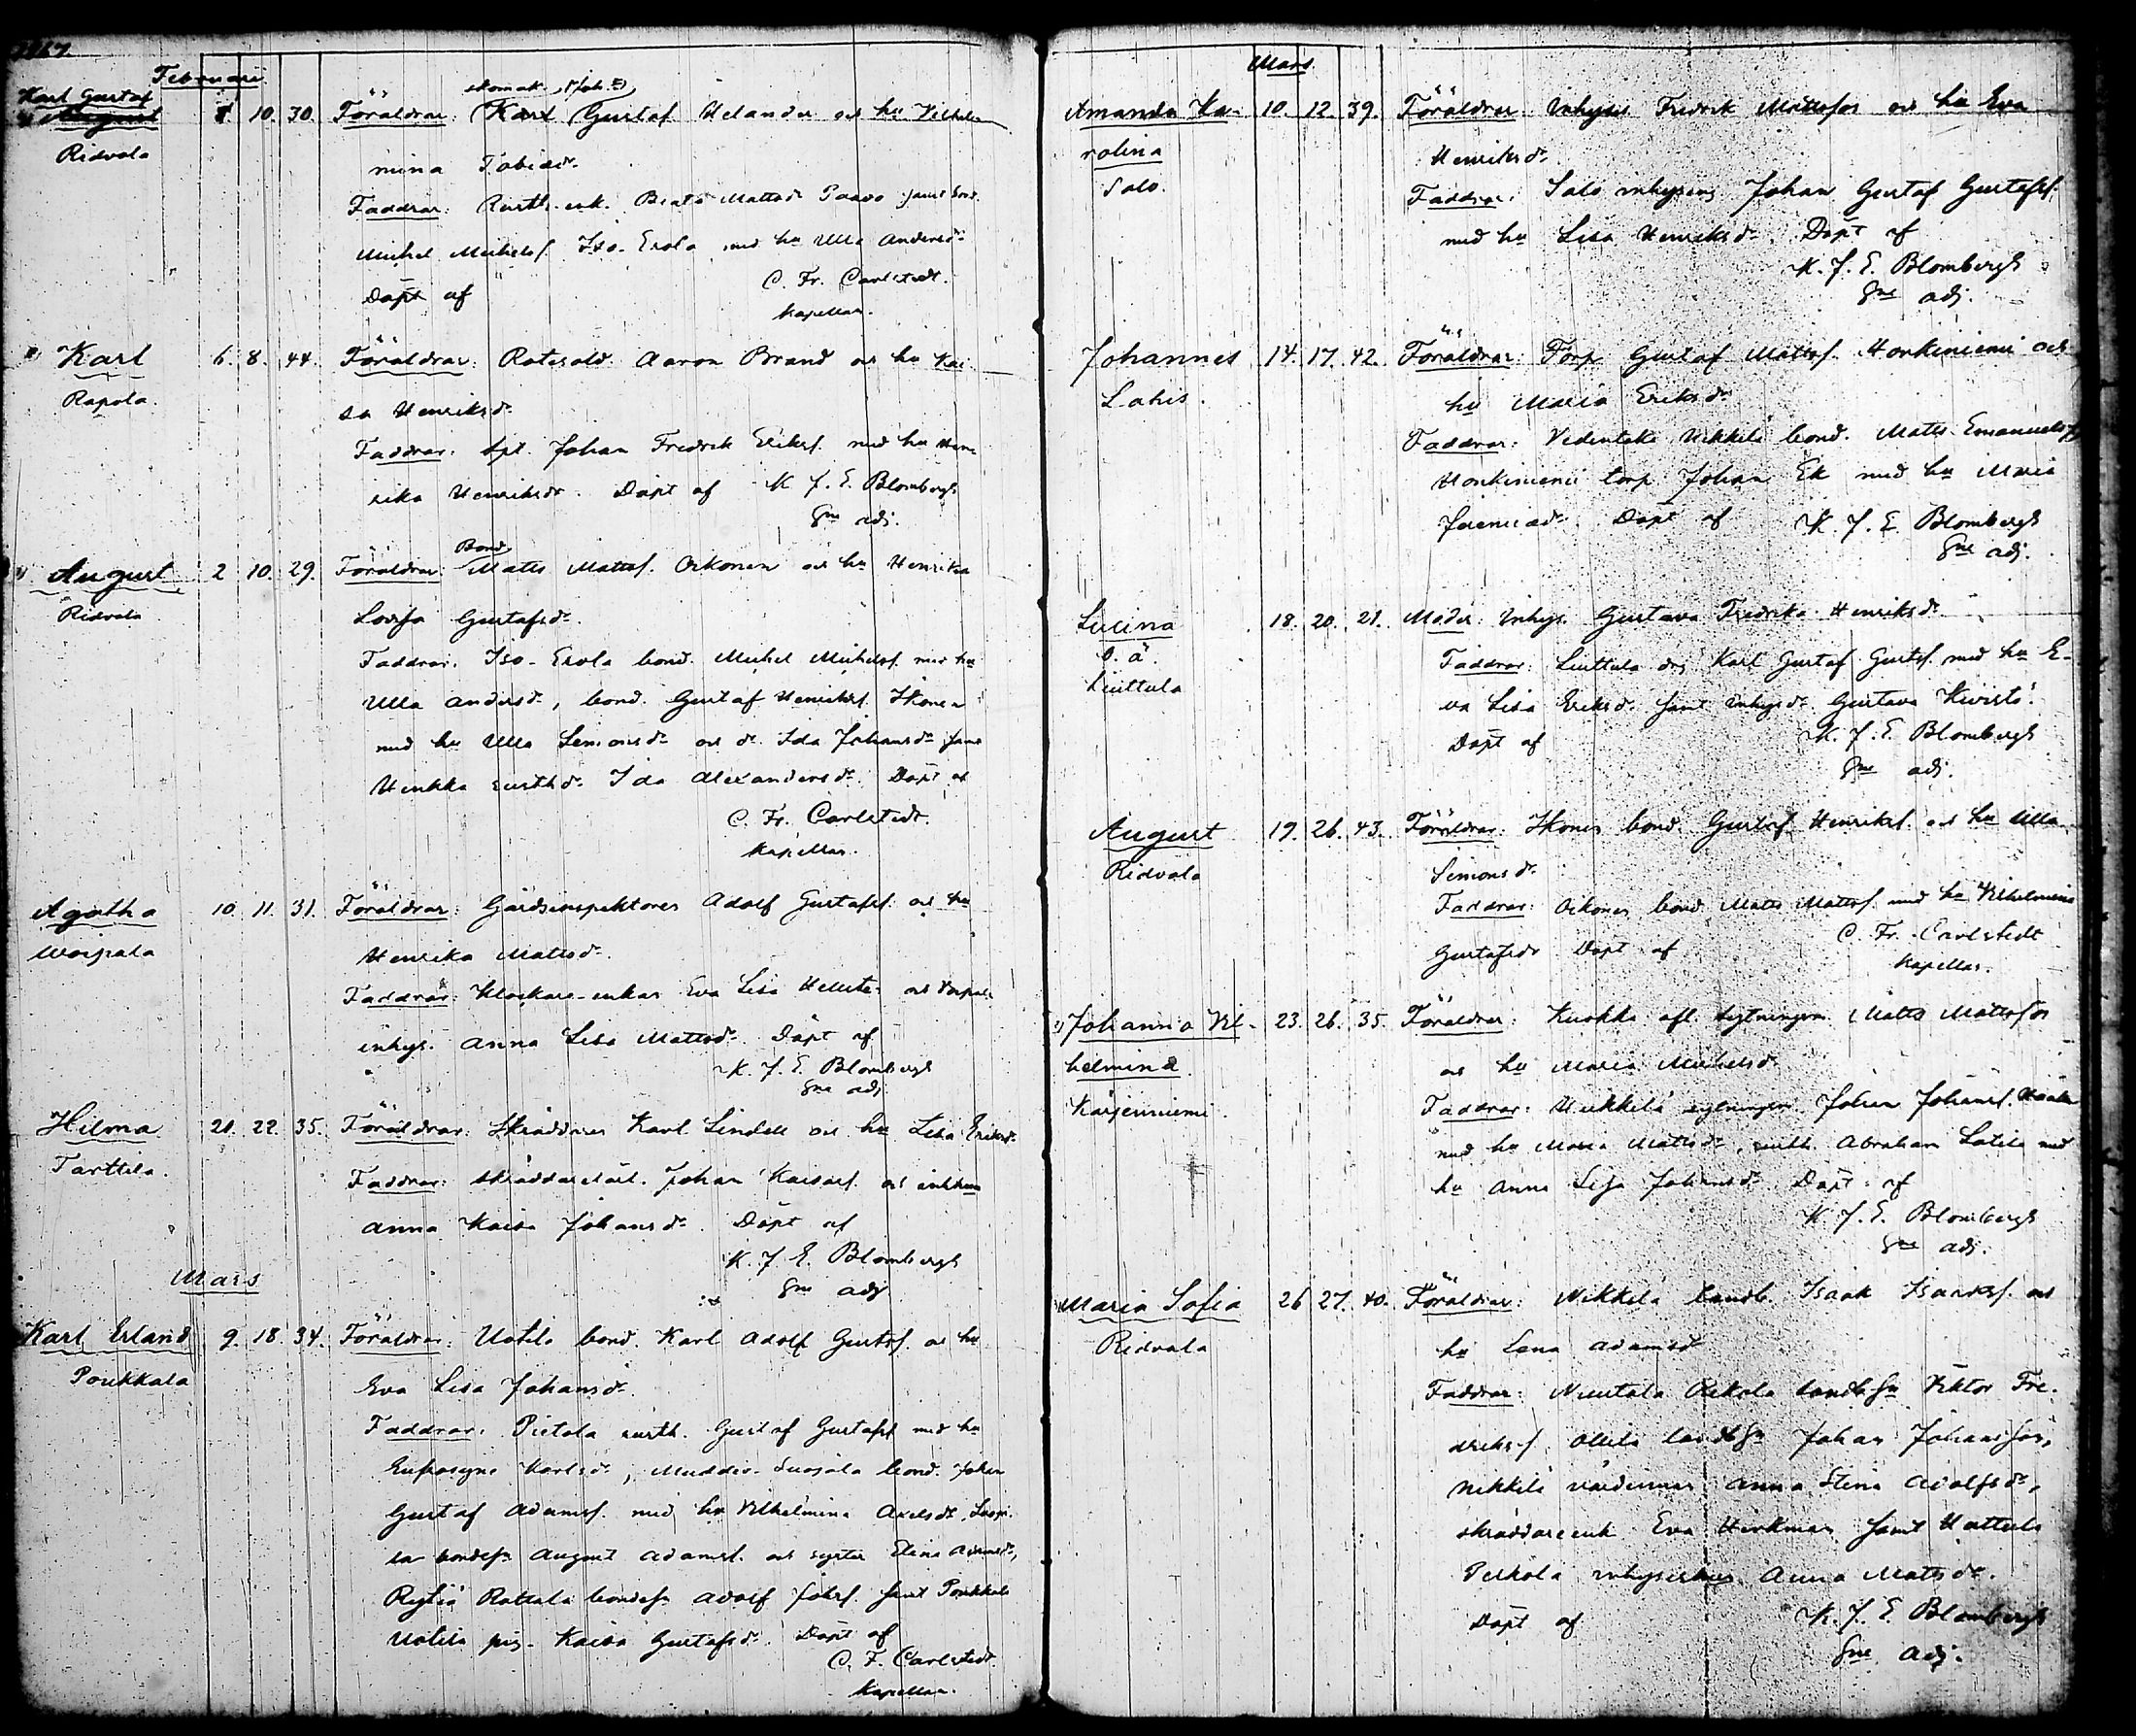 Februari
Karl Gustaf
Ridvala
10. 30. Föräldrar: Karl Gustaf Helander och hu Vilhel-
mina Tobiasdr
Faddrar: Rusth. enk. Beata Mattsdr Paavo samt bond.
Michel Michelss. Iso-Erola med hu Ulla Andersdr
Döpt af C. Fr. Carlstedt.
Kapellan.
Karl 6. 8. 44. Föräldrar: Rotesold. Aaron Brand och hu Kai-
Rapola. sa Henriksdr
Faddrar: Spl. Johan Fredrik Erikss. med hu Hen-
rika Henriksdr. Döpt af K. J. E. Blombergh
adj.
August 2 10. 29. Föräldrar: Bond. Matts Mattss. Oikonen och hu Henrika
Ridvala Lovisa Gustafsdr.
Faddrar: Iso-Erola bond. Michel Michelss. med hu
Ulla Andersdr, bond. Gustaf Henrikss. Ikonen
med hu Ulla Simonsdr och dr. Ida Johansdr samt
rusth.dr. Ida Alexandersdr. Döpt af
C. Fr. Carlstedt.
Kapellan.
Agatha 10. 11. 31. Föräldrar: Gårdsinspektoren Adolf Gustafss. och hu
Woipala Henrika Mattsdr.
Faddrar: Klockare-enkan Eva Lisa och
inhys. Anna Lisa Mattsdr. Döpt af
K. J. E. Blombergh
adj.
Hilma 20. 22. 35. Föräldrar: Skräddaren Karl Lindell och hu Lisa Eriksdr.
Tarttila. Faddrar: Skräddarelärl. Johan och enkan
Anna Kaisa Johansdr. Döpt af
K. J. E. Blombergh
adj
Mars
Karl Erland 9. 18. 34. Föräldrar: Uotila bond. Karl Adolf Gustafs. och hu
Poukkala Eva Lisa Johansdr.
Faddrar: Pietola rusth. Gustaf Gustafss. med hu
Eufrosyne Karlsdr, bond. Johan
Gustaf Adamss. med hu Vilhelmina Axelsdr,
August Adamss. och syster Elina Adamsdr,
Rottala bondes. Adolf Johss. samt Poukkala
Uotila pig. Kaisa Gustafsdr. Döpt af
C. F. Carlstedt.
Kapellan.
Mars
Amanda Ka- 10. 12. 39. Föräldrar: Inhyses Fredrik Mattsson och hu Eva
rolina Henriksdr.
Salo. Faddrar: Salo inhysing Johan Gustaf Gustafss.
med hu Lisa Henriksdr. Döpt af
K. J. E. Blombergh
adj.
Johannes 14. 17. 42. Föräldrar: Torp. Gustaf Mattss. Honkiniemi och
Lahis. hu Maria Eriksdr
Faddrar: Vedentaka Nikkilä bond. Matts Emanuelss,
Honkiniemi torp. Johan Ek med hu Maria
Jeremiasdr. Döpt af K. J. E. Blombergh
adj.
Lucina 18. 20. 21. Moder: Inhys. Gustava Fredrika Henriksdr
o. ä. Faddrar: Liuttula drg Karl Gustaf Gustafs. med hu E-
Liuttula va Lisa Eriksdr samt inhysdr. Gustava Kivistö.
Döpt af K. J. E. Blombergh
adj.
August 19. 26. 43. Föräldrar: Ikonen bond. Gustaf Henrikss. och hu Ulla
Ridvala Simonsdr.
Faddrar: Oikonen bond Matts Mattss. med hu Vilhelmina
Gustafsdr Döpt af C. Fr. Carlstedt
Kapellan.
Johanna Vil- 23. 26. 35. Föräldrar: Kuokka afl. sytningsm. Matts Mattsson
helmina och hu Maria Michelsdr
Kärjenniemi. Faddrar: Nikkilä sytningsm. Johan Johanss.
med hu Maria Mattsdr, rusth. Abraham Lotila med
hu Anna Lisa Johansdr. Döpt af
K. J. E. Blombergh
adj.
Maria Sofia 26 27. 40. Föräldrar: Nikkilä landb. Isaak Isaakss. och
Ridvala hu Lena Adamsdr
Faddrar: landbs. Viktor Fre-
drikss. Ollila landbs. Johan Johansson,
Nikkilä värdinnan Anna Stina Adolfsdr,
skräddareenk. Eva samt Hattula
inhyseskan Anna Mattsdr.
Döpt af K. J. E. Blombergh
adj.